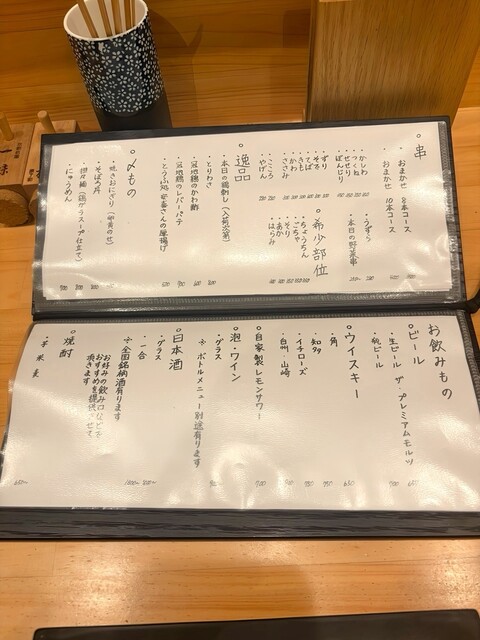 ○串
・おまかせ 8本コース
・おまかせ 10本コース
・かしわ
・つくね
・せせり
・ぼんじり
・ずり
・そろ
・てば
・きも
・かわ
・ささみ
・こころ
・やげん
・うずら
・本日の野菜串
○希少部位
・ちょうちん
・ごちゃ
・そり
・あか
・はらみ
○逸品
・本日の鶏刺し(入荷次第)
・とりわさ
・冠地鶏のかわ酢
・冠地鶏のレバーパテ
・とうふ処 安喜さんの厚揚げ
○〆もの
・焼きおにぎり(卵黄のせ)
・そぼろ丼
・担々麺(鶏ガラスープ仕立て)
・にゅうめん
お飲みもの
○ビール
・生ビール ザ・プレミアムモルツ 650
・瓶ビール 700
○ウイスキー
・角 650
・知多
・イチローズ
・白州・山崎
・自家製レモンサワー 700
○泡・ワイン
・グラス
※ボトルメニュー別途有ります
○日本酒
・グラス
・一合
※全国銘柄酒有ります
お好みの飲み口などで
おすすめを提供させて
頂きます
○焼酎
・芋 米 麦
一味